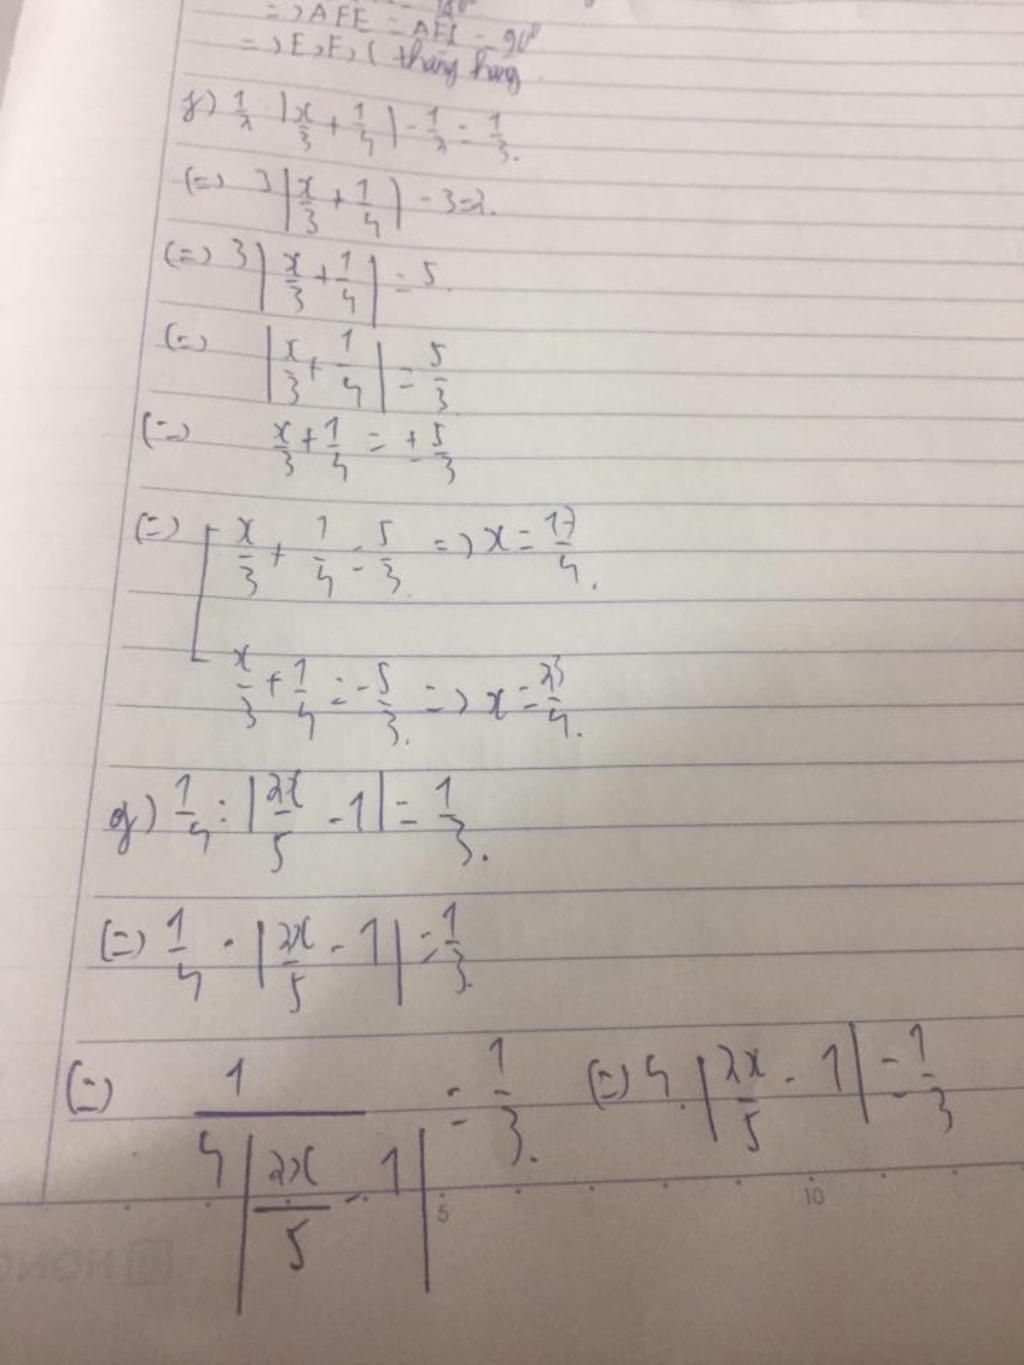 => AFE = AFI = 90°
=> E, F, I thẳng hàng
f) 1/2 |x/3 + 1/4| - 1/2 = 1/3.
(=) 3|x/3 + 1/4| - 3=2.
(=) 3|x/3 + 1/4| = 5.
(=) |x/3 + 1/4| = 5/3
(=) x/3 + 1/4 = ± 5/3
(=) [ x/3 + 1/4 = 5/3 => x = 17/4.
x/3 + 1/4 = -5/3. => x = 23/4.
g) 1/4 : |2x/5 - 1| = 1/3.
(=) 1/4 . |2x/5 - 1| = 1/3.
(=) 1/(4|2x/5 - 1|) = 1/3. (=) 4.|2x/5 - 1| = 1/3
5 10